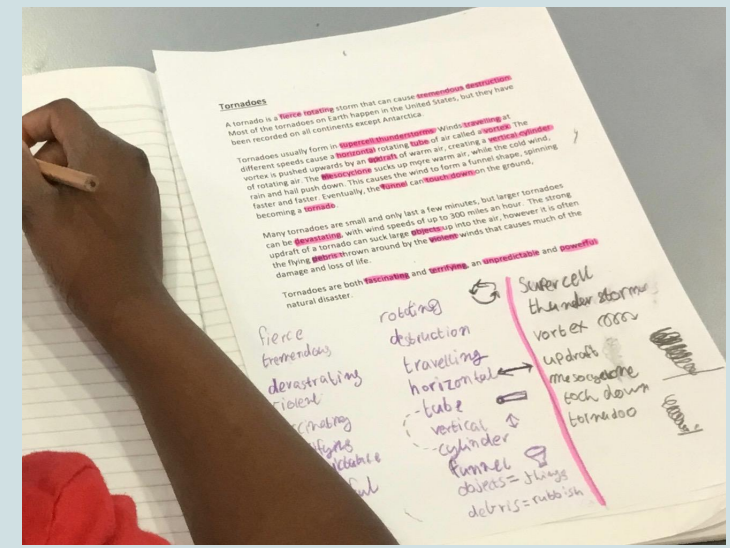 Tornadoes
A tornado is a fierce rotating storm that can cause tremendous destruction.
Most of the tornadoes on Earth happen in the United States, but they have
been recorded on all continents except Antarctica.
Tornadoes usually form in supercell thunderstorms. Winds travelling at
different speeds cause a horizontal rotating tube of air called a vortex. The
vortex is pushed upwards by an updraft of warm air, creating a vertical cylinder
of rotating air. The Mesocyclone sucks up more warm air, while the cold wind,
rain and hail push down. This causes the wind to form a funnel shape, spinning
faster and faster. Eventually, the funnel can touch down on the ground,
becoming a tornado.
Many tornadoes are small and only last a few minutes, but larger tornadoes
can be devastating, with wind speeds of up to 300 miles an hour. The strong
updraft of a tornado can suck large objects up into the air, however it is often
the flying debris thrown around by the violent winds that causes much of the
damage and loss of life.
Tornadoes are both fascinating and terrifying, an unpredictable and powerful
natural disaster.
fierce
tremendous
devastrating
rotating
destruction
travelling
horizontal
tube
vertical
cylinder
funnel
objects = things
debris = rubbish
supercell
thunder storms
vortex
updraft
toch down
tornadoo